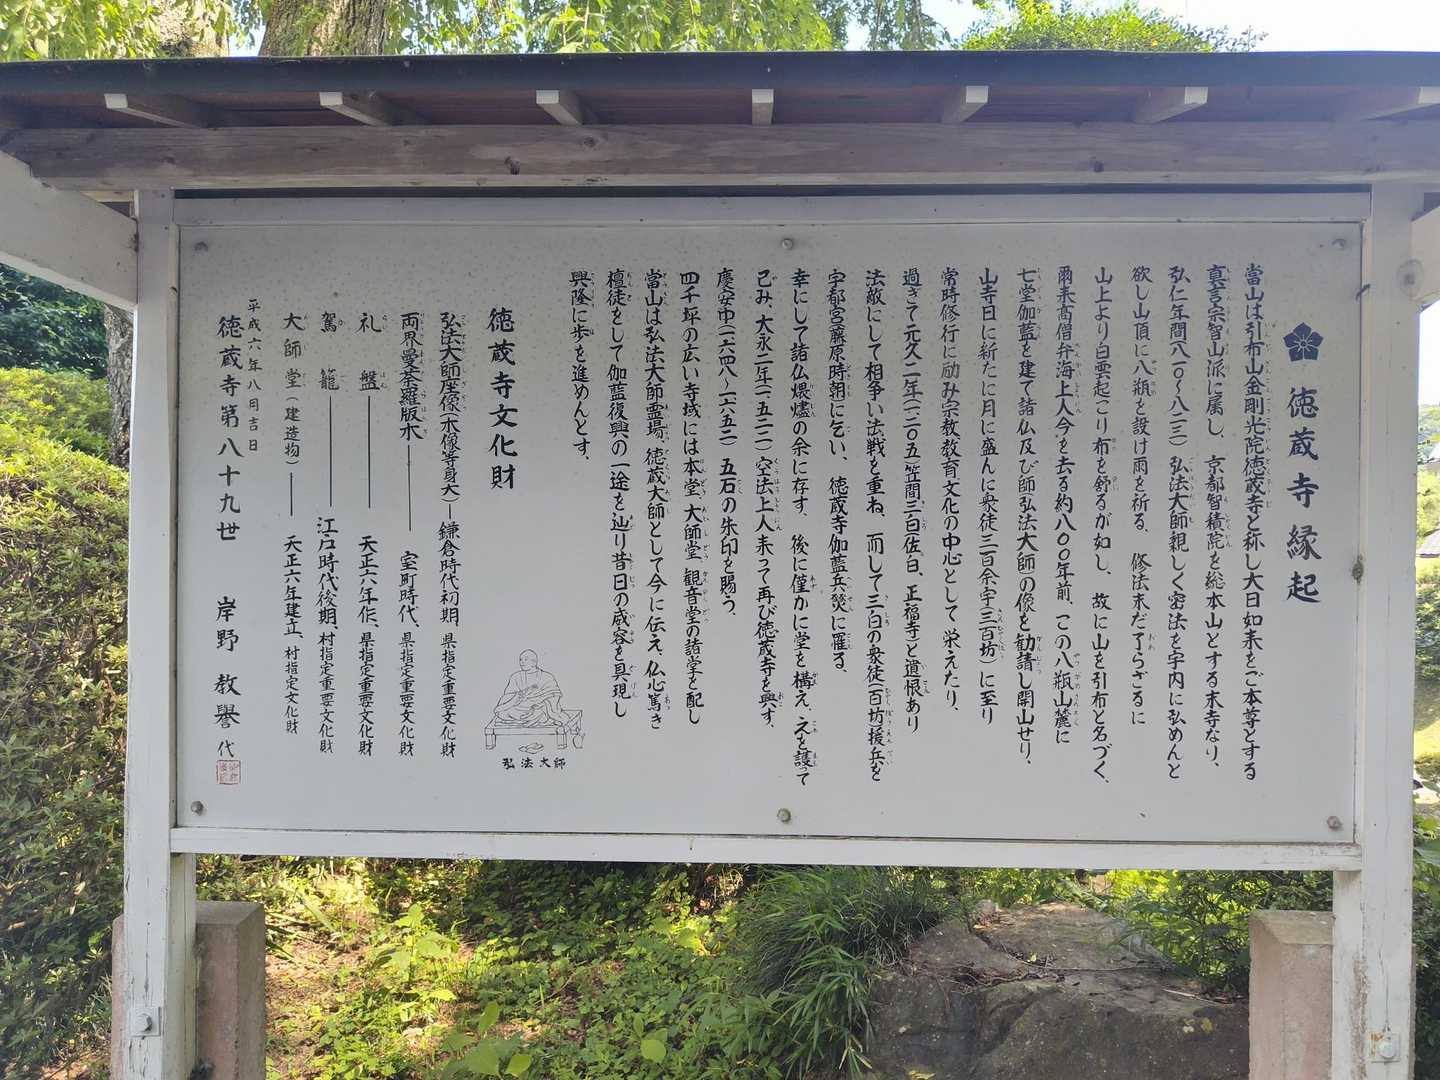 徳蔵寺縁起
當山は引布山金剛光院徳蔵寺と称し大日如来をご本尊とする
真言宗智山派に属し、京都智積院を総本山とする末寺なり、
弘仁年間(八一〇〜八二三)弘法大師親しく密法を宇内に弘めんと
欲し山頂に八瓶を設け雨を祈る、修法未だ了らざるに
山上より白雲起こり布を舒るが如し、故に山を引布と名づく、
爾来高僧弁海上人今を去る約八〇〇年前、この八瓶山麓に
七堂伽藍を建て諸仏及び師弘法大師の像を勧請し開山せり、
山寺日に新たに月に盛んに衆徒三百余宇(三百坊)に至り
常時修行に励み宗教教育文化の中心として栄えたり、
過ぎて元久二年(一二〇五)笠間三白(佐白、正福寺)と遺恨あり
法敵にして相争い法戦を重ね、而して三白の衆徒(百坊)援兵を
宇都宮(藤原時朝)に乞い、徳蔵寺伽藍兵燹に罹る、
幸にして諸仏煨燼の余に存す、後に僅かに堂を構え、之を護って
已み、大永二年(一五二二)空法上人来って再び徳蔵寺を興す、
慶安中(一六四八〜一六五二)五石の朱印を賜う、
四千坪の広い寺域には本堂、大師堂、観音堂の諸堂を配し
當山は弘法大師霊場、徳蔵大師として今に伝え、仏心篤き
檀徒をして伽藍復興の一途を辿り昔日の威容を具現し
興隆に歩を進めんとす、
徳蔵寺文化財
弘法大師座像(木像等身大)—鎌倉時代初期、県指定重要文化財
両界曼荼羅版木——室町時代、県指定重要文化財
礼盤——天正六年作、県指定重要文化財
駕籠——江戸時代後期、村指定重要文化財
大師堂(建造物)——天正六年建立、村指定文化財
平成六年八月吉日
徳蔵寺第八十九世 岸野教譽代
弘法大師